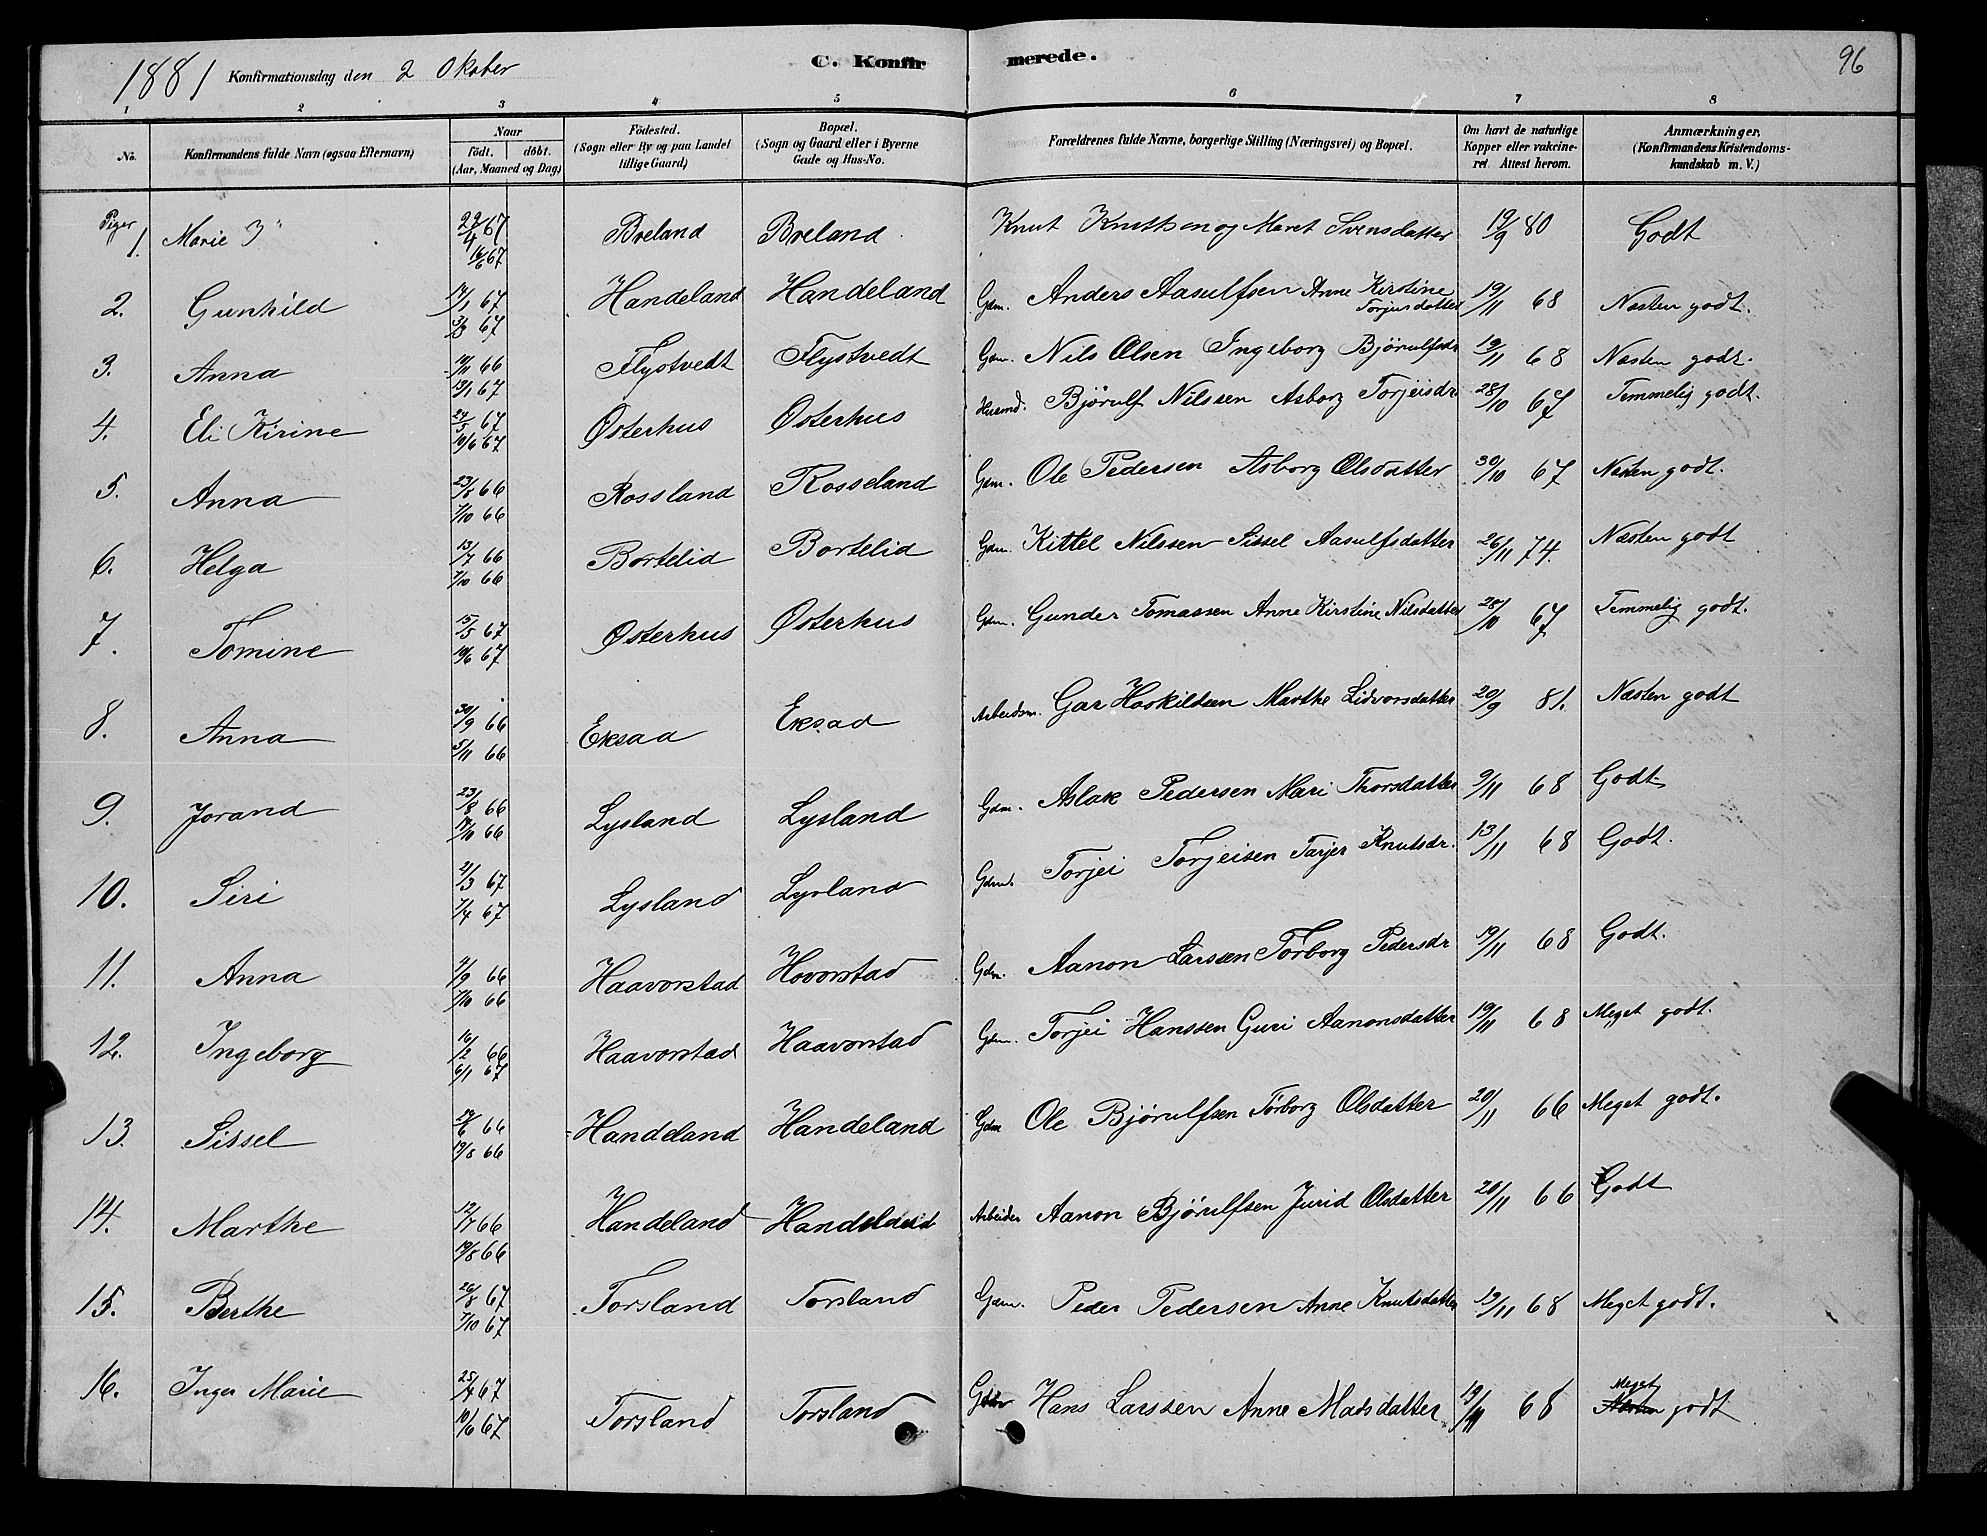 1881 Konfirmationsdag den 2 Oktober C. Konfirmerede. 96
1 2 3 4 5 6 7 8
No. Konfirmandens fulde Navn (ogsaa Efternavn) Naar födt. döbt. (Aar, Maaned og Dag) Födested. (Sogn eller By og paa Landet tillige Gaard) Bopæl. (Sogn og Gaard eller i Byerne Gade og Hus-No. Forældrenes fulde Navne, borgerlige Stilling (Næringsvei) og Bopæl. Om havt de naturlige Kopper eller vakcineret. Attest herom. Anmærkninger. (Konfirmandens Kristendomskundskab m. V.)
Piger
1. Marie 22/4 67 16/6 67 Breland Breland Knut Knutsen og Maret Svensdatter 19/9 80 Godt
2. Gunhild 17/1 67 3/3 67 Handeland Handeland Gdm. Anders Aasulfsen Anne Kirstine Torjusdatter 19/11 68 Næsten godt.
3. Anna 66 13/1 67 Flystvedt Flystvedt Gdm. Nils Olsen Ingeborg Bjørulfsdr 19/11 68 Næsten godt.
4. Eli Kirine 24/5 67 10/6 67 Østerhus Østerhus Husmd. Bjørulf Nilssen Asborg Torjeisdr 28/10 67 Temmelig godt.
5. Anna 23/8 66 7/10 66 Rossland Rosseland Gdm. Ole Pedersen Asborg Olsdatter 30/10 67 Næsten godt.
6. Helga 13/7 66 7/10 66 Bortelid Bortelid Gdm. Kittel Nilssen Sissel Aasulfsdatter 26/11 74. Næsten godt
7. Tomine 15/5 67 10/6 67 Østerhus Østerhus Gdm. Gunder Tomassen Anne Kirstine Nilsdatter 28/10 67 Temmelig godt.
8. Anna 30/9 66 5/11 66 Eksaa Eksaa Arbeidsm. Gar Hoskildsen Marthe Lidvorsdatter 20/9 81. Næsten godt
9. Jorand 23/8 66 17/10 66 Lysland Lysland Gdm. Aslak Pedersen Mari Thorsdatter 9/11 68 Godt
10. Siri 2/3 67 7/4 67 Lysland Lysland Gdm. Torjei Torjeisen Tarjer Knutsdr. 13/11 68 Godt.
11. Anna 2/9 66 7/10 66 Haavorstad Hovorstad Gdm. Aanon Larssen Torborg Pedersdr 19/11 68 Godt.
12. Ingeborg 16/12 66 6/1 67 Haavorstad Haavorstad Gdm. Torjei Hanssen Guri Aanonsdatter 19/11 68 Meget godt.
13. Sissel 66 19/8 66 Handeland Handeland Gdm Ole Bjørulfsen Torborg Olsdatter 20/11 66 Meget godt.
14. Marthe 12/7 66 19/8 66 Handeland Handeland Arbeider Aanon Bjørulfsen Jurid Olsdatter 20/11 66 Godt
15. Berthe 26/8 67 7/10 67 Torsland Torsland Gdm. Peder Pedersen Anne Knutsdatter 19/11 68 Meget godt.
16. Inger Marie 25/4 67 10/6 67 Torsland Torsland Gdm Hans Larssen Anne Madsdatter 19/11 68 Meget godt